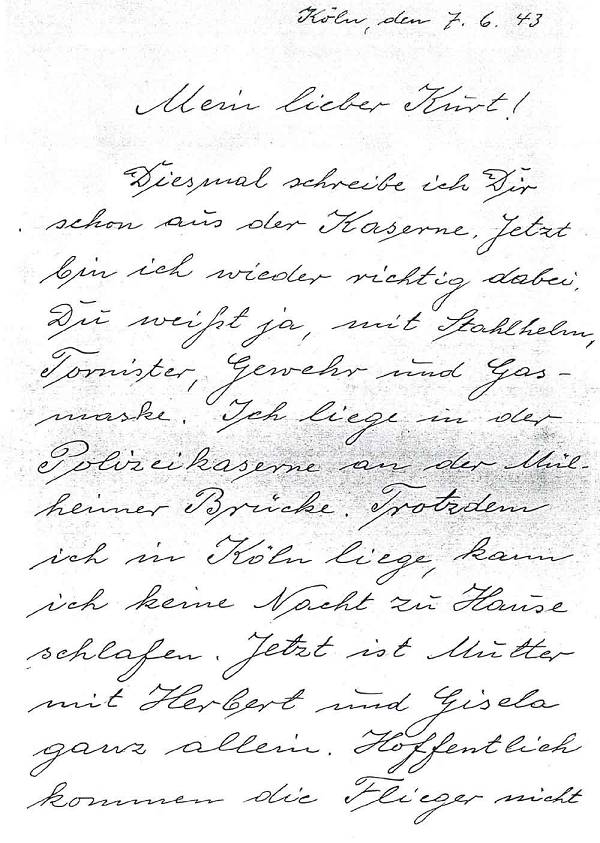 Köln, den 7. 6. 43
Mein lieber Kurt!
Diesmal schreibe ich Dir
schon aus der Kaserne. Jetzt
bin ich wieder richtig dabei.
Du weißt ja, mit Stahlhelm,
Tornister, Gewehr und Gas-
maske. Ich liege in der
Polizeikaserne an der Mül-
heimer Brücke. Trotzdem
ich in Köln liege, kann
ich keine Nacht zu Hause
schlafen. Jetzt ist Mutter
mit Herbert und Gisela
ganz allein. Hoffentlich
kommen die Flieger nicht